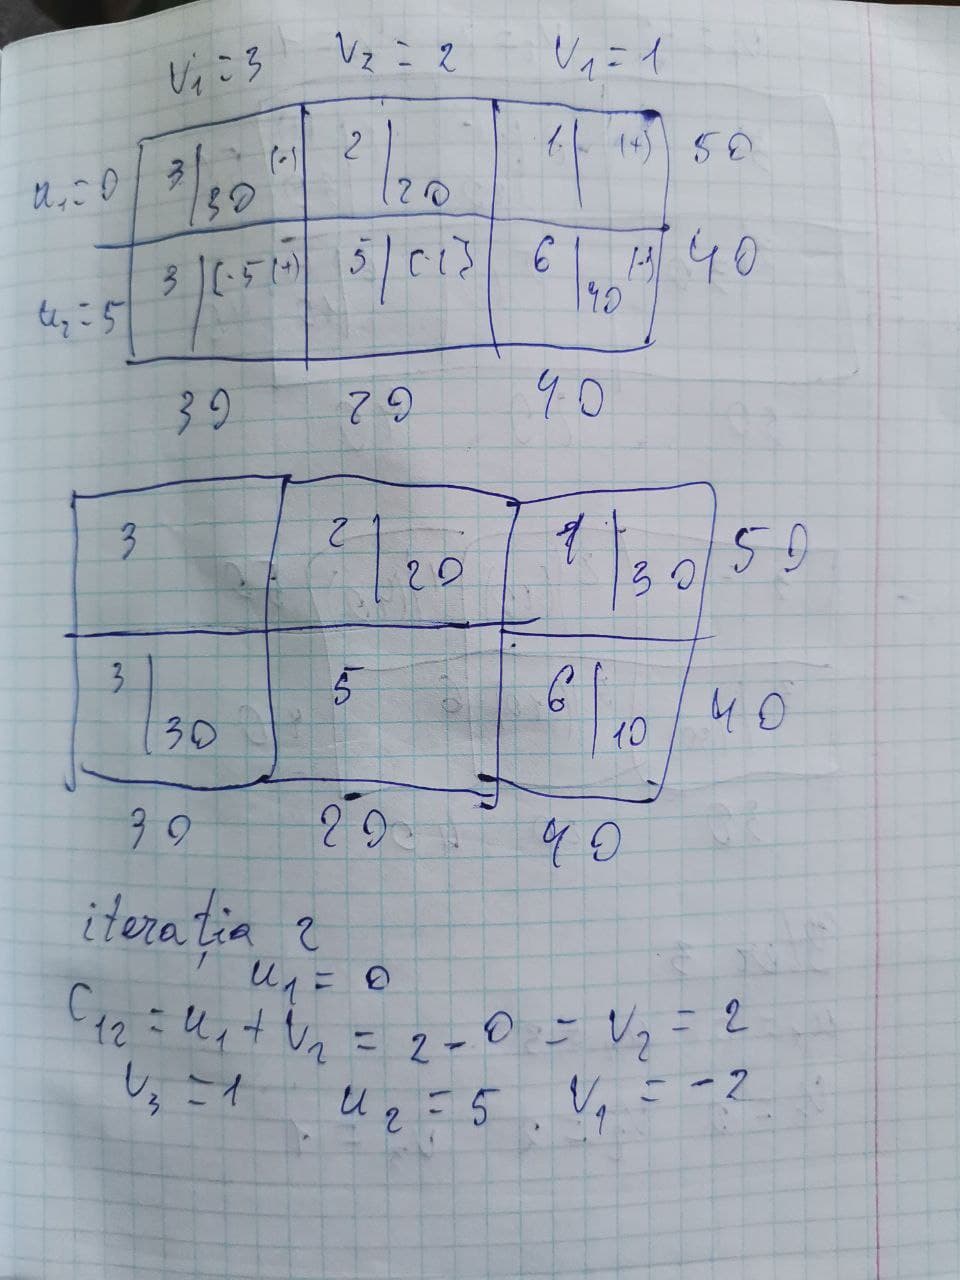 V₁=3 V₂=2 V₁=1
u₁=0 3 | 30 (-) 2 | 20 1 | (+) 50
u₂=5 3 | [-5 (+) 5 | [-1] 6 | 40 (-) 40
30 20 40
3 2 | 20 1 | 30 50
3 | 30 5 6 | 10 40
30 20 40
iterația 2
u₁=0
C₁₂=u₁+V₂=2-0=V₂=2
V₃=1 u₂=5 V₁=-2